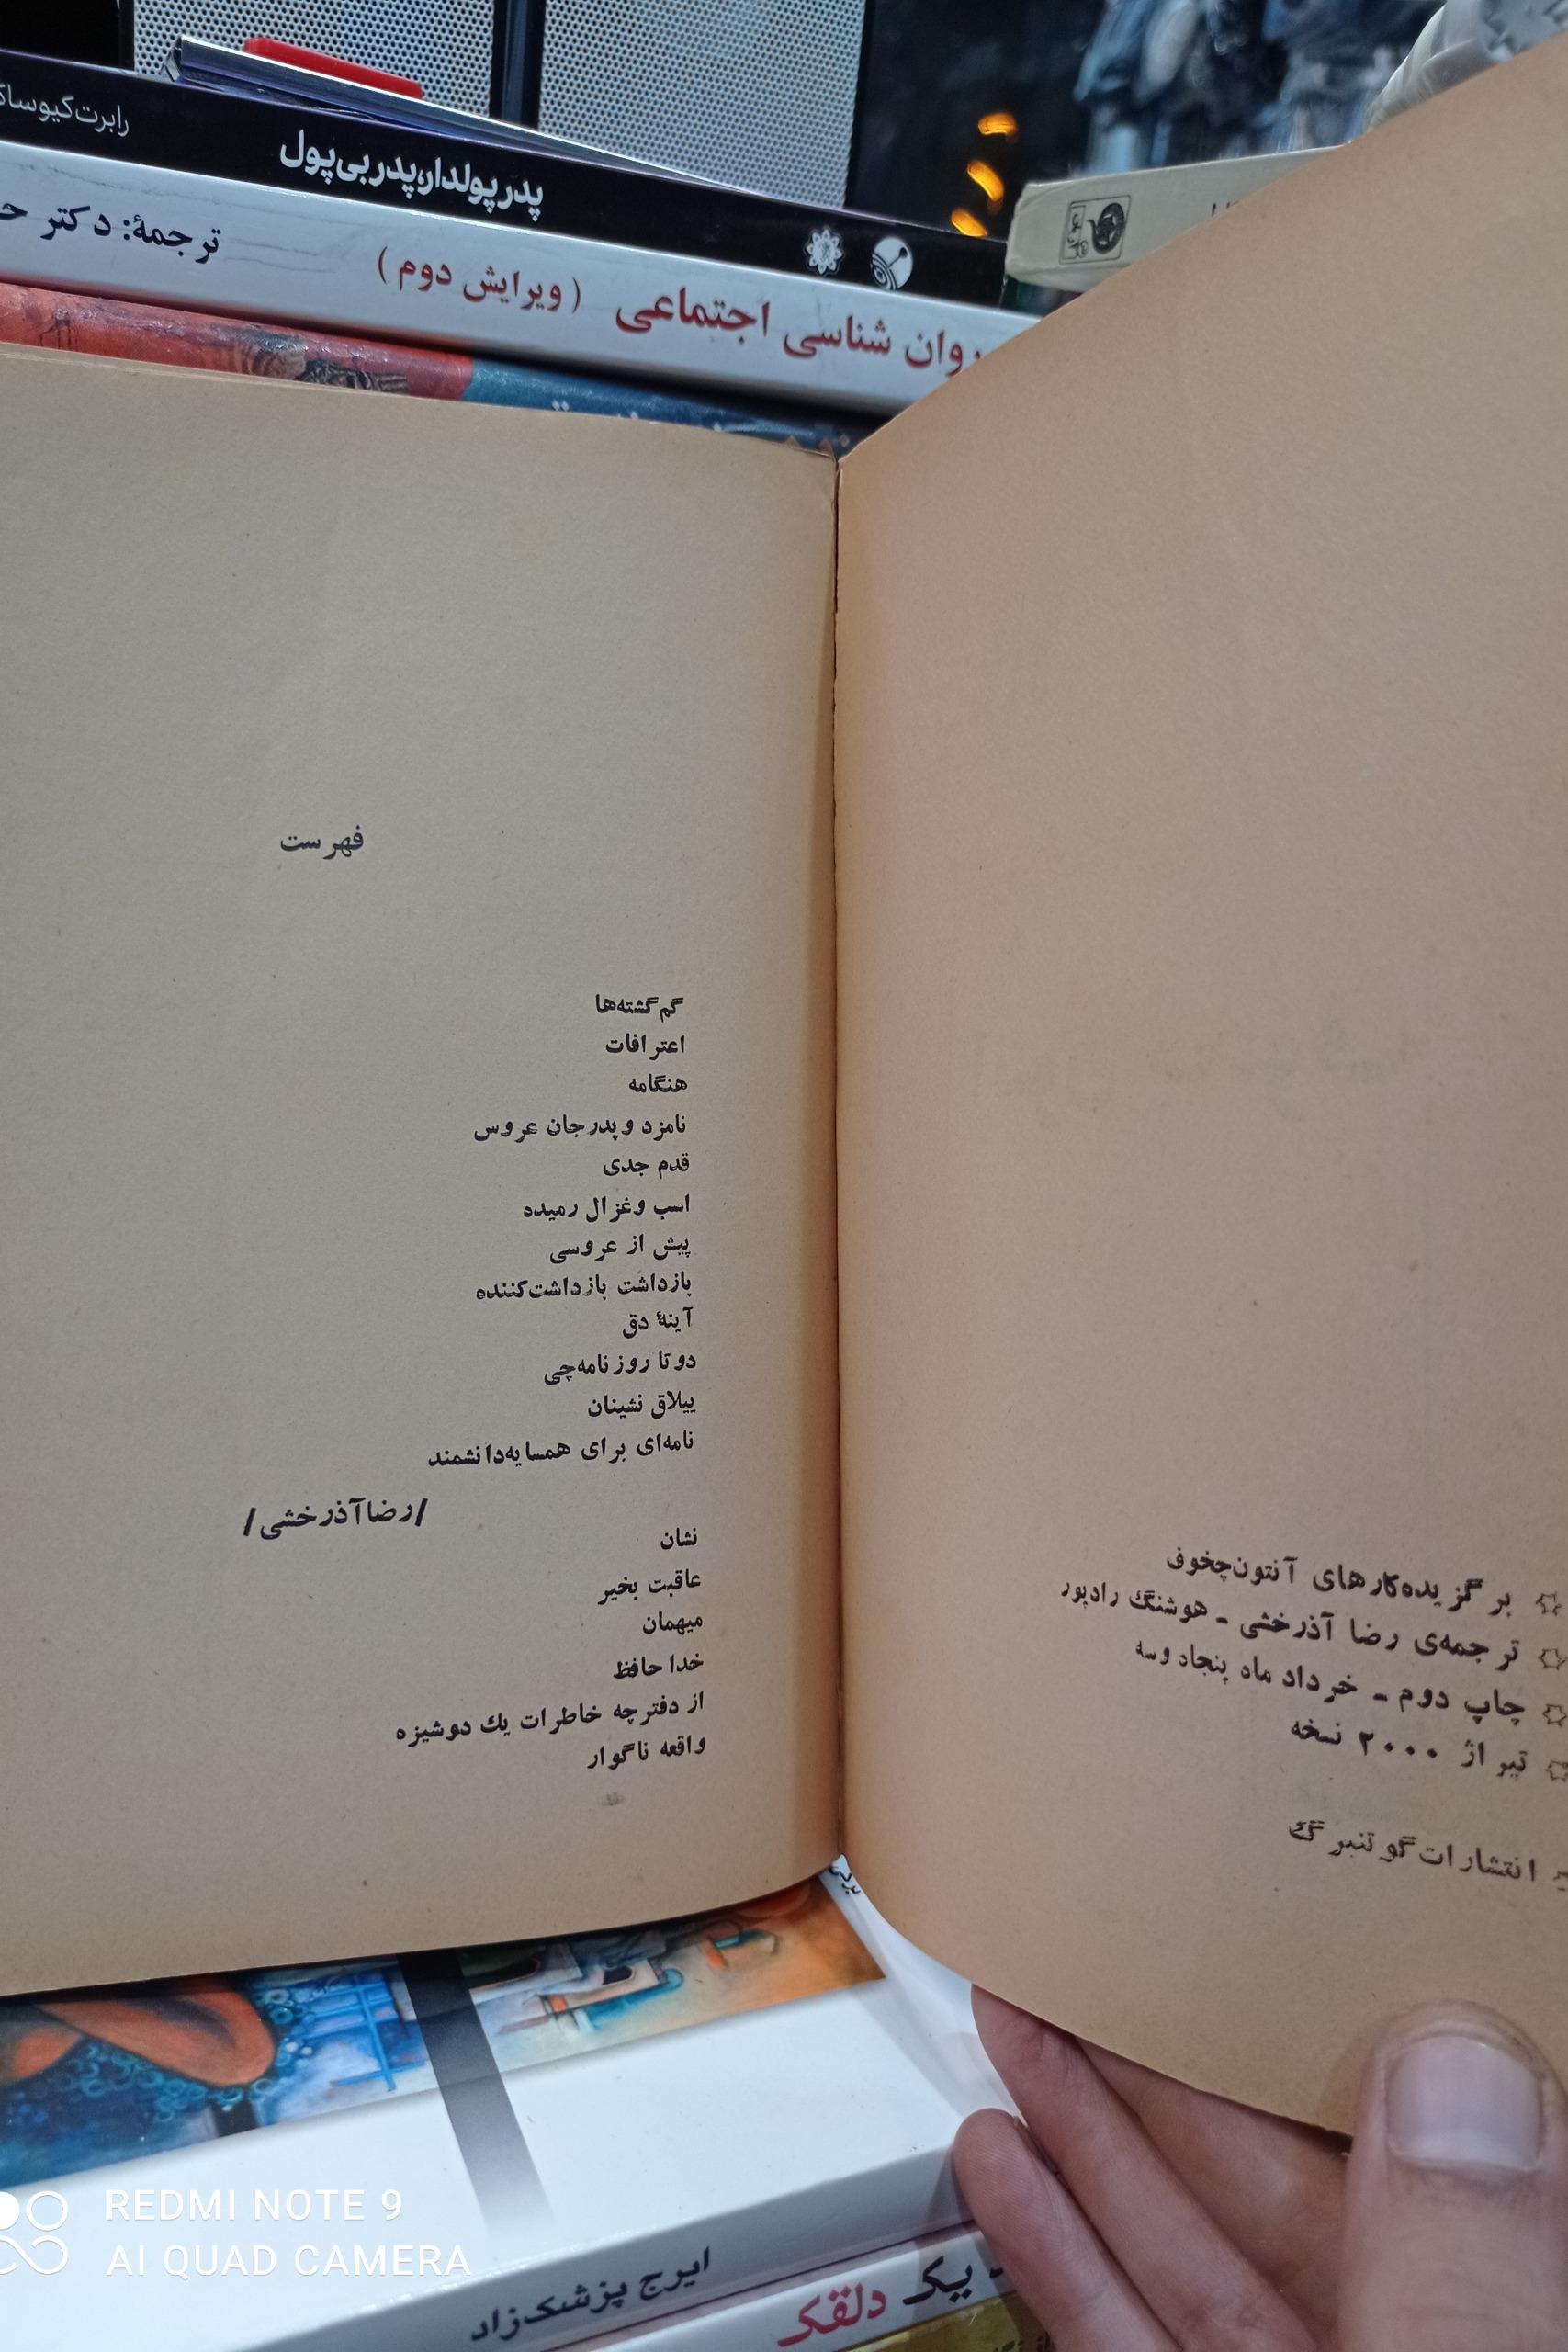 رابرت کیوساک
پدر پولدار، پدر بی‌پول
روان شناسی اجتماعی ( ویرایش دوم ) ترجمهٔ: دکتر
برگزیده‌کارهای آنتون‌چخوف
ترجمه‌ی رضا آذرخشی - هوشنگ رادپور
چاپ دوم - خرداد ماه پنجاه وسه
تیراژ ۲۰۰۰ نسخه
انتشارات گوتنبرگ
فهرست
گم‌گشته‌ها
اعترافات
هنگامه
نامزد و پدرجان عروس
قدم جدی
اسب وغزال رمیده
پیش از عروسی
بازداشت بازداشت‌کننده
آینهٔ دق
دوتا روزنامه‌چی
ییلاق نشینان
نامه‌ای برای همسایه‌دانشمند
/رضا آذرخشی/
نشان
عاقبت بخیر
میهمان
خدا حافظ
از دفترچه خاطرات یك دوشیزه
واقعه ناگوار
ایرج پزشک‌زاد
یک دلقک
REDMI NOTE 9
AI QUAD CAMERA